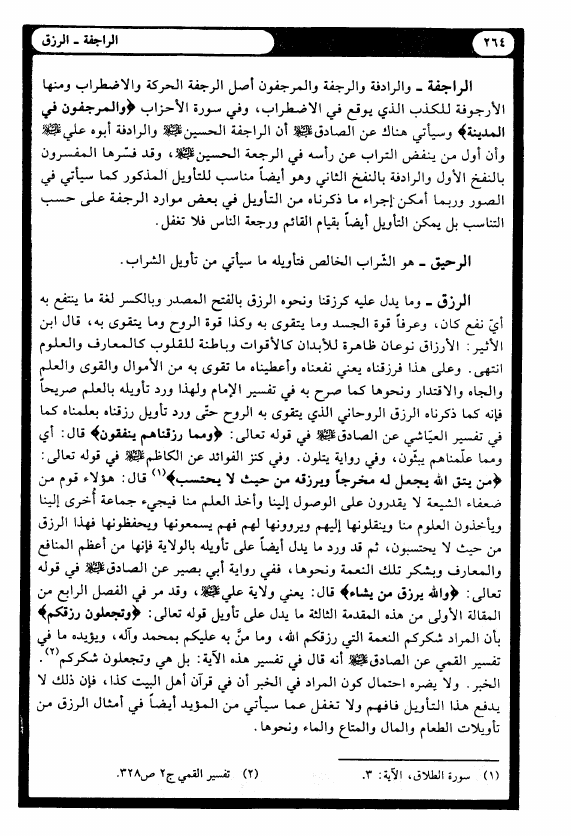 ٢٦٤
الراجفة ـ الرزق
الراجفة ـ والرادفة والرجفة والمرجفون أصل الرجفة الحركة والاضطراب ومنها
الأرجوفة للكذب الذي يوقع في الاضطراب، وفي سورة الأحزاب ﴿والمرجفون في
المدينة﴾ وسيأتي هناك عن الصادق أن الراجفة الحسين والرادفة أبوه علي
وأن أول من ينفض التراب عن رأسه في الرجعة الحسين، وقد فسّرها المفسرون
بالنفخ الأول والرادفة بالنفخ الثاني وهو أيضاً مناسب للتأويل المذكور كما سيأتي في
الصور وربما أمكن إجراء ما ذكرناه من التأويل في بعض موارد الرجفة على حسب
التناسب بل يمكن التأويل أيضاً بقيام القائم ورجعة الناس فلا تغفل.
الرحيق ـ هو الشّراب الخالص فتأويله ما سيأتي من تأويل الشراب.
الرزق ـ وما يدل عليه كرزقنا ونحوه الرزق بالفتح المصدر وبالكسر لغة ما ينتفع به
أيّ نفع كان، وعرفاً قوة الجسد وما يتقوى به وكذا قوة الروح وما يتقوى به، قال ابن
الأثير: الأرزاق نوعان ظاهرة للأبدان كالأقوات وباطنة للقلوب كالمعارف والعلوم
انتهى. وعلى هذا فرزقناه يعني نفعناه وأعطيناه ما تقوى به من الأموال والقوى والعلم
والجاه والاقتدار ونحوها كما صرح به في تفسير الإمام ولهذا ورد تأويله بالعلم صريحاً
فإنه كما ذكرناه الرزق الروحاني الذي يتقوى به الروح حتّى ورد تأويل رزقناه بعلمناه كما
في تفسير العيّاشي عن الصادق في قوله تعالى: ﴿ومما رزقناهم ينفقون﴾ قال: أي
ومما علّمناهم يبثّون، وفي رواية يتلون. وفي كنز الفوائد عن الكاظم في قوله تعالى:
﴿من يتق الله يجعل له مخرجاً ويرزقه من حيث لا يحتسب﴾(١) قال: هؤلاء قوم من
ضعفاء الشيعة لا يقدرون على الوصول إلينا وأخذ العلم منا فيجيء جماعة أُخرى إلينا
ويأخذون العلوم منا وينقلونها إليهم ويروونها لهم فهم يسمعونها ويحفظونها فهذا الرزق
من حيث لا يحتسبون، ثم قد ورد ما يدل أيضاً على تأويله بالولاية فإنها من أعظم المنافع
والمعارف وبشكر تلك النعمة ونحوها، ففي رواية أبي بصير عن الصادق في قوله
تعالى: ﴿والله يرزق من يشاء﴾ قال: يعني ولاية علي، وقد مر في الفصل الرابع من
المقالة الأولى من هذه المقدمة الثالثة ما يدل على تأويل قوله تعالى: ﴿وتجعلون رزقكم﴾
بأن المراد شكركم النعمة التي رزقكم الله، وما منَّ به عليكم بمحمد وآله، ويؤيده ما في
تفسير القمي عن الصادق أنه قال في تفسير هذه الآية: بل هي وتجعلون شكركم(٢).
الخبر. ولا يضره احتمال كون المراد في الخبر أن في قرآن أهل البيت كذا، فإن ذلك لا
يدفع هذا التأويل فافهم ولا تغفل عما سيأتي من المؤيد أيضاً في أمثال الرزق من
تأويلات الطعام والمال والمتاع والماء ونحوها.
(١) سورة الطلاق، الآية: ٣.
(٢) تفسير القمي ج٢ ص٣٢٨.